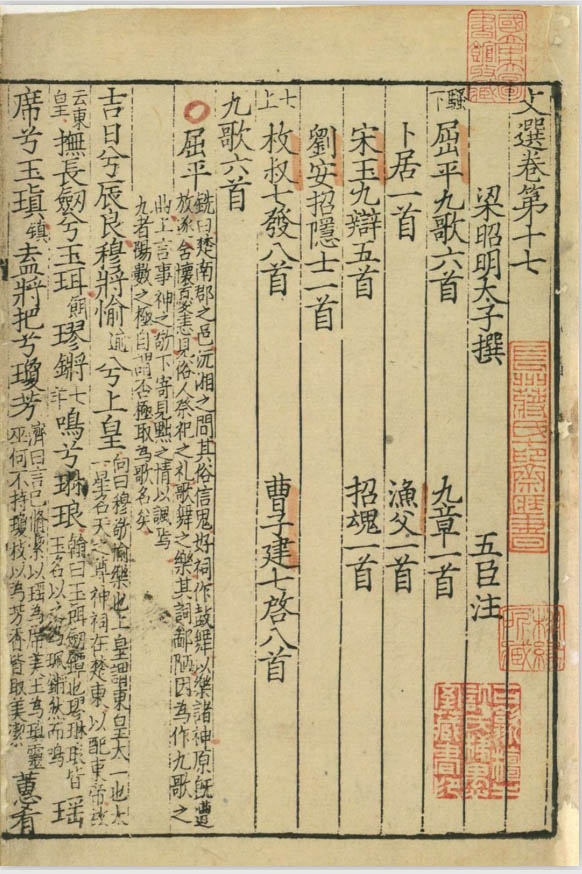 文選卷第十七
梁昭明太子撰 五臣注
騷下 屈平九歌六首 九章一首
卜居一首 漁父一首
宋玉九辯五首 招魂一首
劉安招隱士一首
七上 枚叔七發八首 曹子建七啓八首
九歌六首
屈平 銑曰楚南郢之邑沅湘之間其俗信鬼好祠作鼓舞以樂諸神原旣遭放逐含懷憂悲見俗人祭祀之礼歌舞之樂其詞鄙陋因為作九歌之
曲上言事神之敬下寄見黜之情以諷焉九者陽數之極自謂否極取為歌名矣
吉日兮辰良穆將愉逾兮上皇 向曰穆敬愉樂也上皇謂東皇太一也太一星名天之尊神祠在楚東以配東帝故
云東皇 撫長劒兮玉珥餌璆鏘七羊鳴兮琳琅 翰曰玉珥劒鐔也璆琳琅皆玉名以之為珮鏘然而鳴 瑶
席兮玉瑱鎮盍將把兮瓊芳 濟曰言已修絜以瑶為席美玉為瑱靈巫何不持瓊枝以為芳香皆取美潔 蕙肴